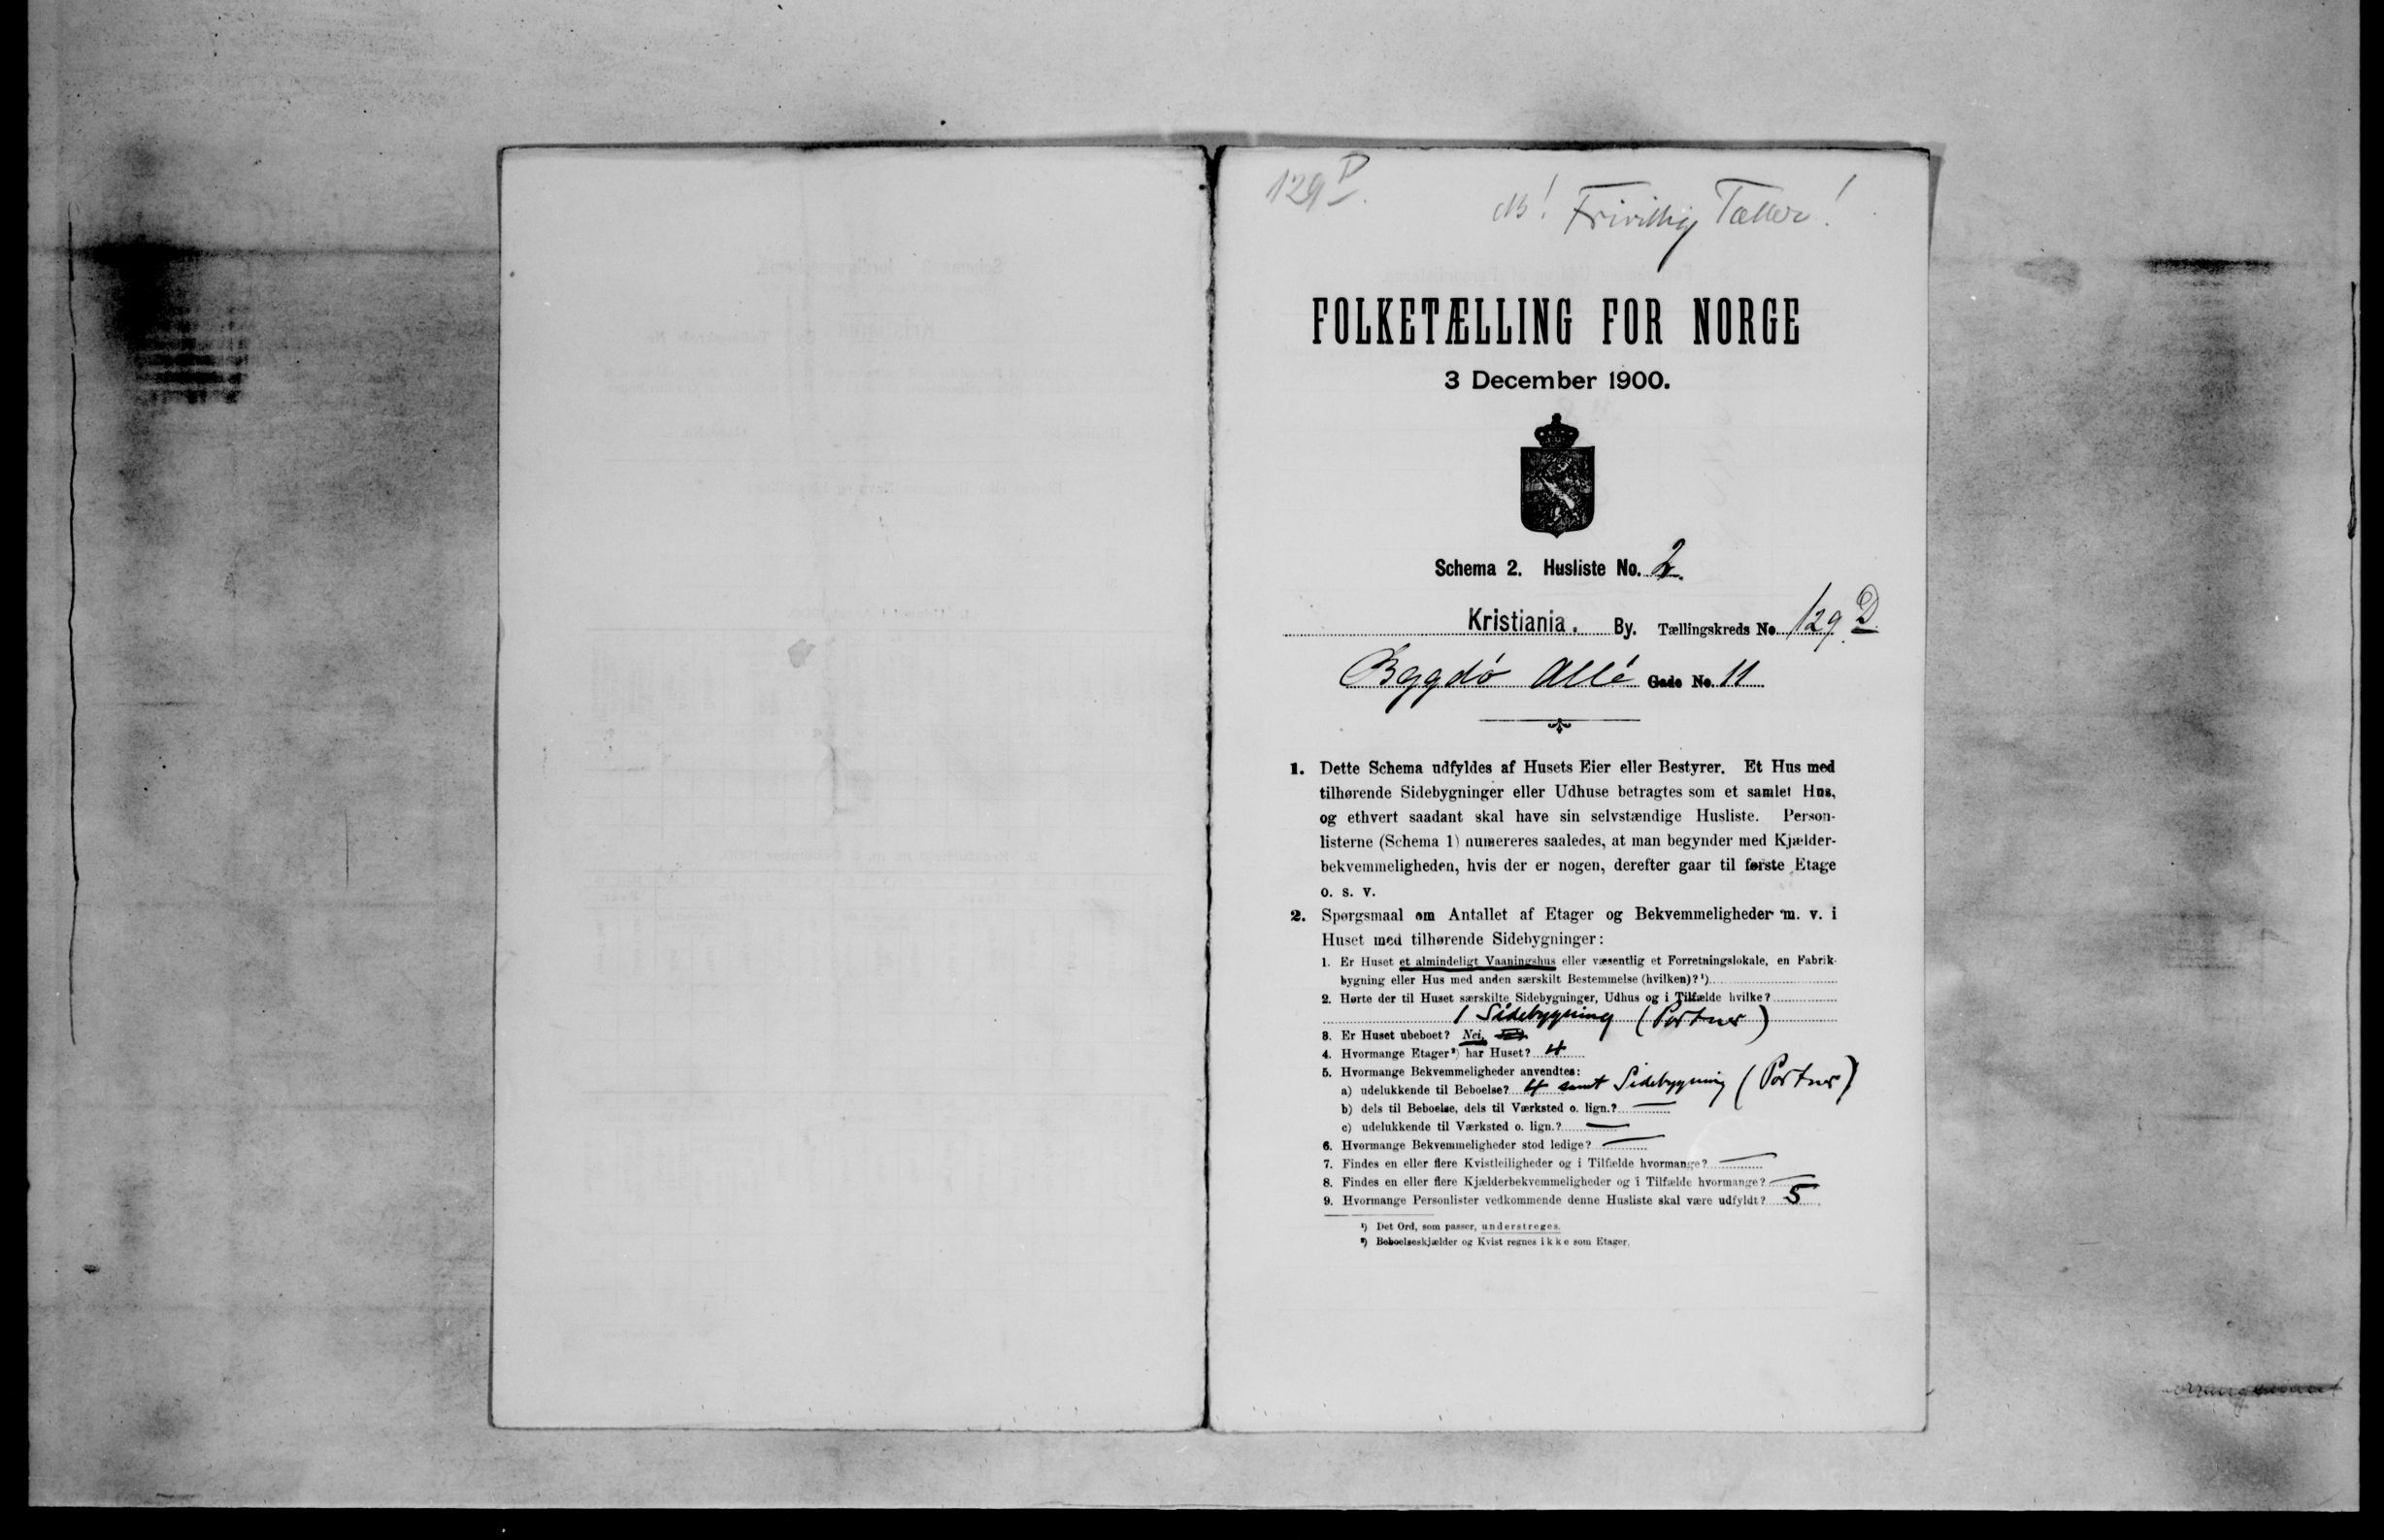 129D.
NB! Frivillig Tæller!
FOLKETÆLLING FOR NORGE
3 December 1900.
Schema 2. Husliste No. 2
Kristiania. By. Tællingskreds No. 129 D
Bygdø Allé Gade No. 11
1. Dette Schema udfyldes af Husets Eier eller Bestyrer. Et Hus med
tilhørende Sidebygninger eller Udhuse betragtes som et samlet Hus,
og ethvert saadant skal have sin selvstændige Husliste. Person-
listerne (Schema 1) numereres saaledes, at man begynder med Kjælder-
bekvemmeligheden, hvis der er nogen, derefter gaar til første Etage
o. s. v.
2. Spørgsmaal om Antallet af Etager og Bekvemmeligheder m. v. i
Huset med tilhørende Sidebygninger:
1. Er Huset et almindeligt Vaaningshus eller væsentlig et Forretningslokale, en Fabrik-
bygning eller Hus med anden særskilt Bestemmelse (hvilken)?¹)
2. Hørte der til Huset særskilte Sidebygninger, Udhus og i Tilfælde hvilke?
1 Sidebygning (Portner)
3. Er Huset ubeboet? Nei,
4. Hvormange Etager²) har Huset? 4
5. Hvormange Bekvemmeligheder anvendtes:
a) udelukkende til Beboelse? 4 samt Sidebygning (Portner)
b) dels til Beboelse, dels til Værksted o. lign.? —
c) udelukkende til Værksted o. lign.? —
6. Hvormange Bekvemmeligheder stod ledige? —
7. Findes en eller flere Kvistleiligheder og i Tilfælde hvormange? —
8. Findes en eller flere Kjælderbekvemmeligheder og i Tilfælde hvormange? —
9. Hvormange Personlister vedkommende denne Husliste skal være udfyldt? 5
¹) Det Ord, som passer, understreges.
²) Beboelseskjælder og Kvist regnes ikke som Etager.